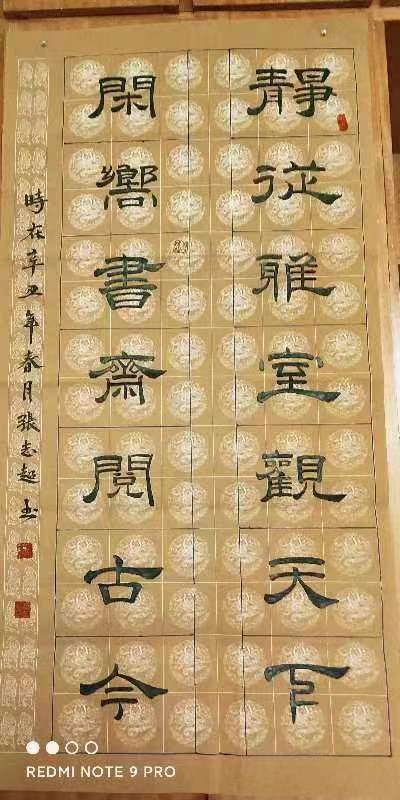 靜從雅室觀天下
閑嚮書齋閱古今
時在辛丑年春月張志超書
REDMI NOTE 9 PRO